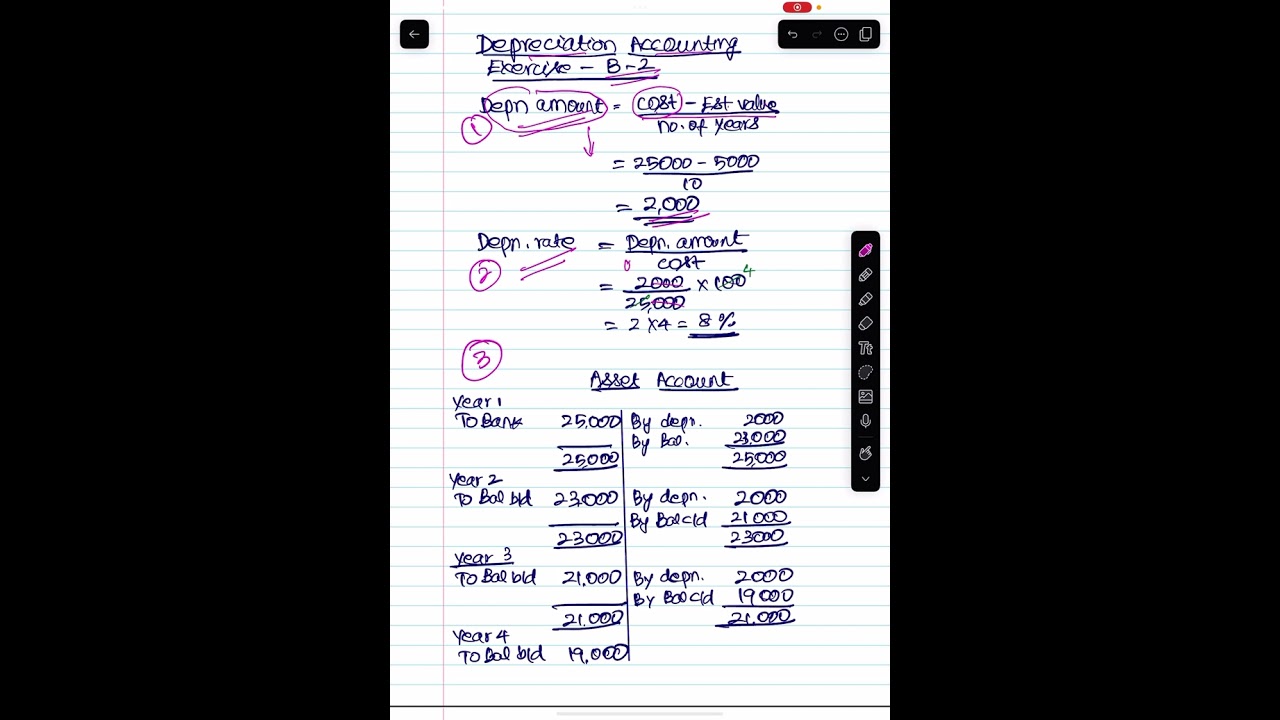 Depreciation Accounting
Exercise - B-2
① Depn amount = Cost - Est. value
no. of years
= 25000 - 5000
10
= 2,000
② Depn. rate = Depn. amount
cost
0
= 2000 × 100 4
25,000
= 2 × 4 = 8%
③
Asset Account
Year 1
To Bank 25,000 By depn. 2000
By Bal. 23,000
25,000 25,000
Year 2
To Bal b/d 23,000 By depn. 2000
By Bal c/d 21000
23000 23000
Year 3
To Bal b/d 21,000 By depn. 2000
By Bal c/d 19000
21,000 21,000
Year 4
To Bal b/d 19,000
Tt